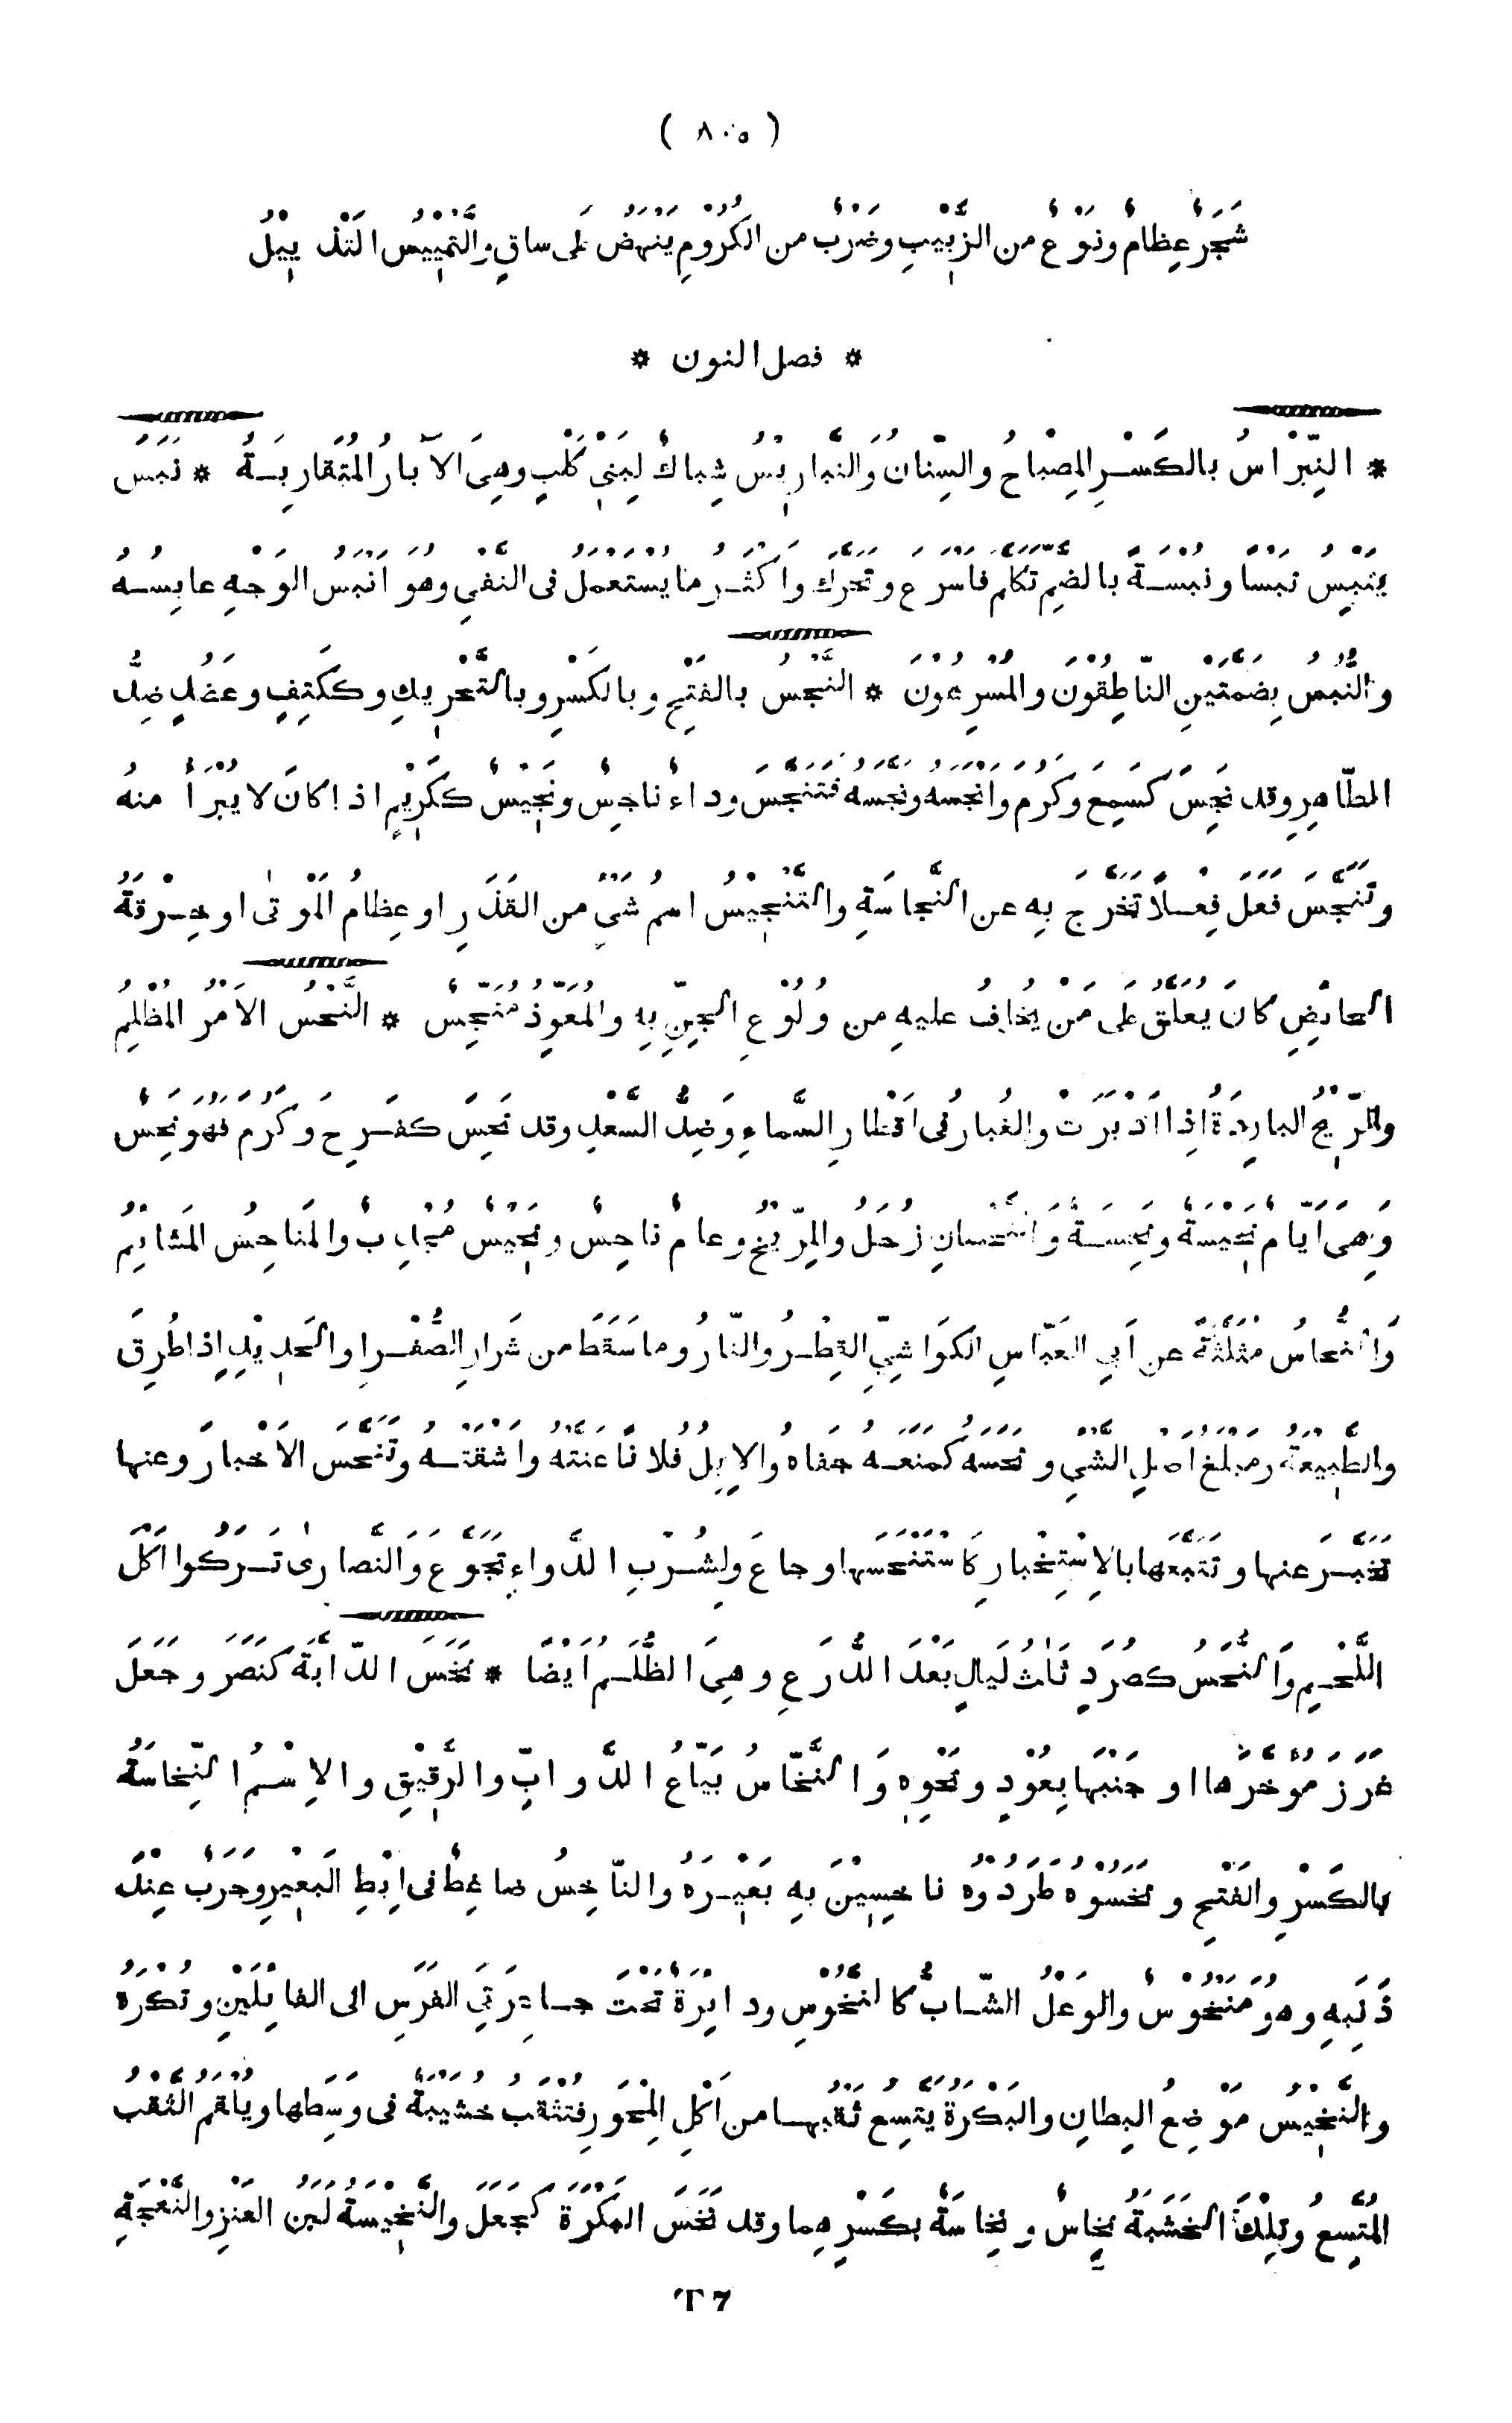 ( ٨٠٥ )
شَجَرٌ عِظَامٌ ونَوْعٌ من الزَّبِيْبِ وضَرْبٌ من الكُرُوْمِ يَنْهَضُ عَلى ساقٍ والتَّمْيِيْسُ التَذْيِيْلُ
* فصل النون *
* النِّبْرَاسُ بالكَسْرِ المِصْباحُ والسِّنَانُ والنَّبارِيْسُ شِباكٌ لِبَنِيْ كَلْبٍ وهِىَ الآبَارُ المُتَقارِبَةُ * نَبَسَ
يَنْبِسُ نَبْسًا ونُبْسَةً بالضَمِّ تَكَلَّمَ فَاَسْرَعَ وتَحَرَّكَ واَكْثَرُ ما يُسْتَعْمَلُ فى النَّفْىِ وهو اَنْبَسُ الوَجْهِ عابِسُهُ
والنُّبُسُ بِضَمَّتَيْنِ النَّاطِقُوْنَ والمُسْرِعُوْنَ * النَّجْسُ بالفَتْحِ وبالكَسْرِ وبالتَّحْرِيْكِ وكَكَتِفٍ وعَضُدٍ ضِدُّ
الطَّاهِرِ وقد نَجِسَ كَسَمِعَ وكَرُمَ واَنْجَسَهُ ونَجَّسَهُ فَتَنَجَّسَ وداءٌ ناجِسٌ ونَجِيْسٌ كَكَرِيْمٍ اذا كانَ لا يُبْرَأُ منهُ
وتَنَجَّسَ فَعَلَ فِعْلاً تَخَرَّجَ بِهِ عن النَّجاسَةِ والتَّنْجِيْسُ اسمُ شَىْءٍ من القَذَرِ او عِظامُ المَوْتٰى او خِرْقَةُ
الحائِضِ كانَ يُعَلَّقُ عَلى مَنْ يُخافُ عليهِ من وُلُوْعِ الجِنِّ بِهِ والمُعَوِّذُ مُنَجِّسٌ * النَّحْسُ الاَمْرُ المُظْلِمُ
والرِّيْحُ البارِدَةُ اِذا اَدْبَرَتْ والغُبارُ فى اَقْطارِ السَّماءِ وضِدُّ السَّعْدِ وقد نَحِسَ كفَرِحَ وكَرُمَ فهو نَحِسٌ
وَهِىَ اَيَّامٌ نَحِيْسَةٌ ونَحِسَةٌ والنَّحْسانِ زُحَلُ والمِرِّيْخُ وعامٌ ناحِسٌ ونَحِيْسٌ مُجْدِبٌ والمَناحِسُ المَشائِيْمُ
والنُّحاسُ مُثَلَّثَةً عن اَبِى العَبَّاسِ الكَواشِيِّ القِطْرُ والنَّارُ وما سَقَطَ من شَرارِ الصُّفْرِ او الحَدِيْدِ اِذا طُرِقَ
والطَّبِيْعَةُ ومَبْلَغُ اَصْلِ الشَّىْءِ ونَحَسَهُ كمَنَعَهُ جَفاهُ والاِبِلُ فُلانًا عَنَّتْهُ واَشْقَتْهُ وتَنَحَّسَ الاَخْبارَ وعنها
تَخَبَّرَ عنها وتَتَبَّعَها بالاِسْتِخْبارِ كَاسْتَنْحَسَها وجاعَ ولِشُرْبِ الدَّواءِ تَجَوَّعَ والنَّصارٰى تَرَكُوا اَكْلَ
اللَّحْمِ والنُّحَسُ كصُرَدٍ ثَلٰثُ لَيالٍ بَعْدَ الدُّرَعِ وهِىَ الظُّلَمُ اَيْضًا * نَخَسَ الدّابَّةَ كنَصَرَ وجَعَلَ
غَرَزَ مُؤَخَّرَها او جَنْبَها بِعُوْدٍ ونَحْوِهِ وَالنَّخّاسُ بَيّاعُ الدَّوابِّ والرَّقِيْقِ والاِسْمُ النِّخاسَةُ
بالكَسْرِ والفَتْحِ ونَخَسُوْهُ طَرَدُوْهُ ناخِسِيْنَ بِهِ بَعِيْرَهُ والنّاخِسُ ضاغِطٌ فى اِبْطِ البَعِيْرِ وجَرَبٌ عِنْدَ
ذَنَبِهِ وهُوَ مَنْخُوْسٌ والوَعْلُ الشّابُّ كالنَّخُوْسِ ودائِرَةٌ تَحْتَ جاعِرَتَىِ الفَرَسِ الى الفائِلَيْنِ وتُكْرَهُ
والنَّخِيْسُ مَوْضِعُ البِطانِ والبَكْرَةُ يَتَّسِعُ ثَقْبُها من اَكْلِ المِحْوَرِ فَتُثْقَبُ خُشَيْبَةٌ فى وَسَطِها ويُلْقَمُ الثَّقْبُ
المُتَّسِعُ وتِلْكَ الخَشَبَةُ نِخاسٌ ونِخاسَةٌ بكَسْرِهِما وقد نَخَسَ البَكْرَةَ كجَعَلَ والنَّخِيْسَةُ لَبَنُ العَنْزِ والنَّعْجَةِ
T 7